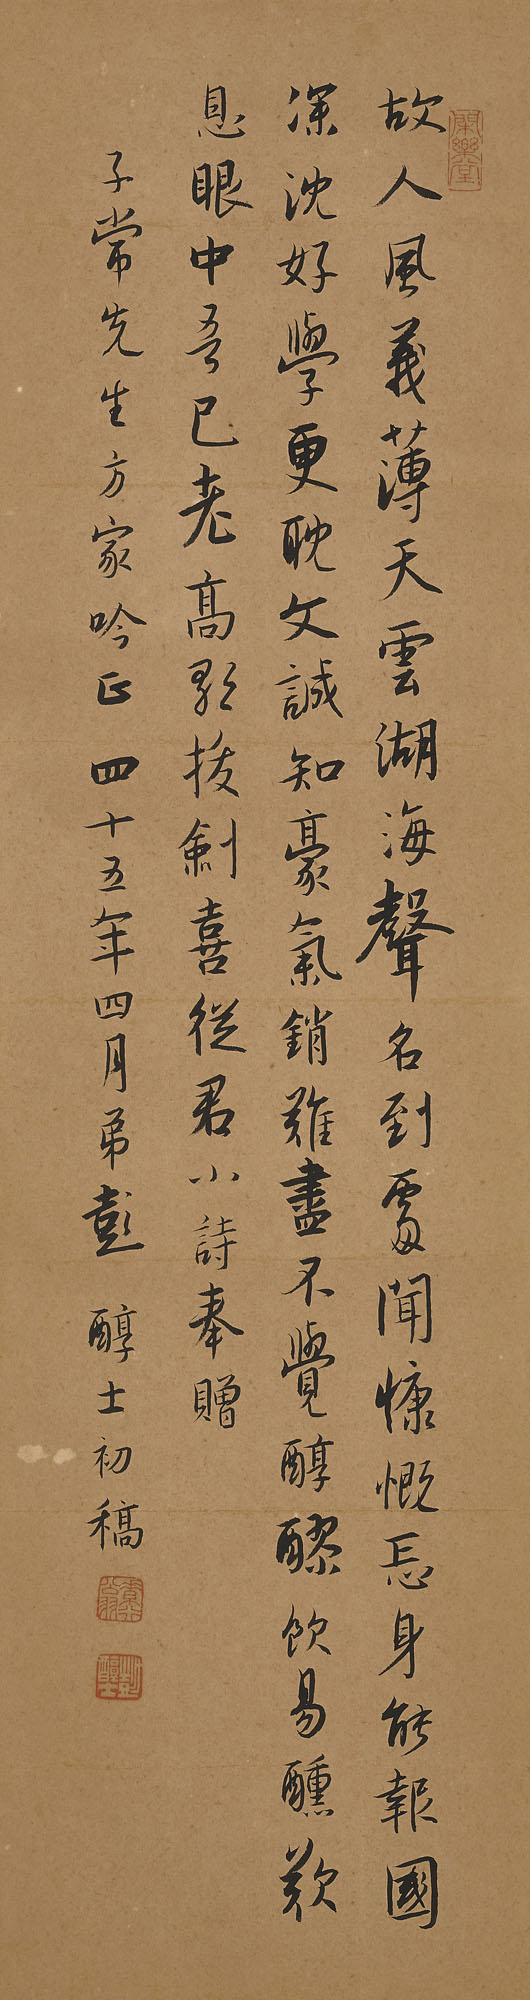 故人風義薄天雲湖海聲名到處聞慷慨忘身能報國
深沈好學更耽文誠知豪氣銷難盡不覺醇醪飲易醺歎
息眼中吾已老高歌拔劍喜從君小詩奉贈
子常先生方家吟正 四十五年四月弟彭醇士初稿